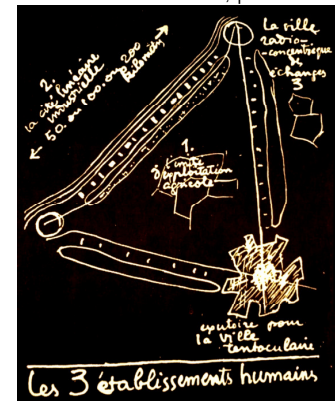 2.
la cité linéaire
industrielle
50. ou 100. ou 200
kilomètres
la ville
radio-
-concentrique
de
échanges
3
1.
l'unité
d'exploitation
agricole
exutoire pour
la ville
tentaculaire
les 3 établissements humains